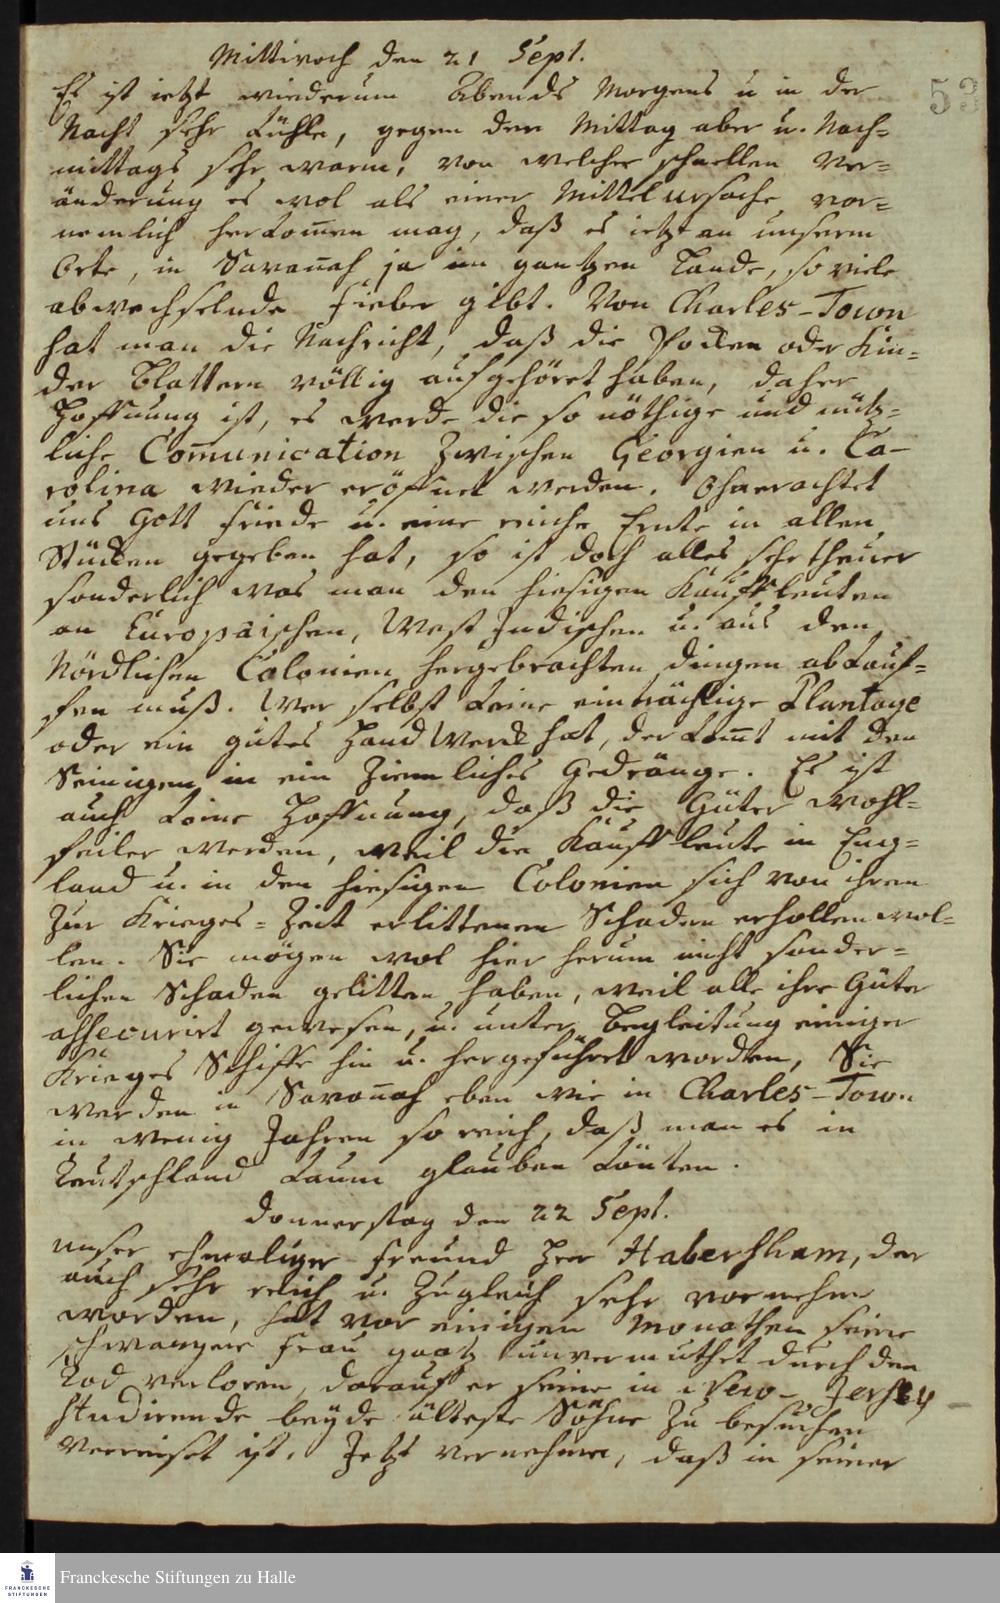 Mittwoch den 21 Sept.
53
Es ist ietzt wiederum Abends Morgens u in der
Nacht sehr kühle, gegen den Mittag aber u. Nach=
mittags sehr warm, von welcher schnellen Ver=
änderung es wol als einer Mittelursache vor=
nemlich herkom̅en mag, daß es ietzt an unserm
Orte, in Savan̅ah ja im gantzen Lande, so viele
abwechselnde Fieber gibt. Von Charles-Town
hat man die Nachricht, daß die Pocken oder Kin=
der Blattern völlig aufgehöret haben, daher
Hoffnung ist, es werde die so nöthige und nütz=
liche Com̅unication zwischen Georgien u. Ca-
rolina wieder eröffnet werden. Ohnerachtet
uns Gott Friede u. eine reiche Ernte in allen
Stücken gegeben hat, so ist doch alles sehr theuer
sonderlich was man den hiesigen Kauffleuten
an Europäischen, West Indischen u. aus den
Nördlichen Colonien hergebrachten dingen abkauf=
fen muß. Wer selbst keine einträchtige Plantage
oder ein gutes Handwerck hat, der kom̅t mit den
Seinigen in ein ziemliches Gedränge. Es ist
auch keine Hoffnung, daß die Güter wohl=
feiler werden, weil die Kauffleute in Eng=
land u. in den hiesigen Colonien sich von ihren
zur Krieges=Zeit erlittenen Schaden erhollen wol=
len. Sie mögen wol hier herum nicht sonder=
lichen Schaden gelitten haben, weil alle ihre Güter
assecurirt gewesen, u. unter Begleitung einiger
Krieges Schiffe hin u. hergeführet worden, Sie
werden in Savan̅ah eben wie in Charles-Town
in wenig Jahren so reich, daß man es in
Teutschland kaum glauben könten.
Donnerstag den 22 Sept.
Unser ehmaliger Freund Herr Habersham, der
auch sehr reich u. zugleich sehr vornehm
worden, hat vor einigen Monathen seine
schwangere Frau gantz unvermuthet durch den
Tod verloren, darauf er seine in New-Jersey
studirende beyde älteste Söhne zu besuchen
verreiset ist. Jetzt vernehme, daß in seiner
Franckesche Stiftungen zu Halle
FRANCKESCHE
STIFTUNGEN